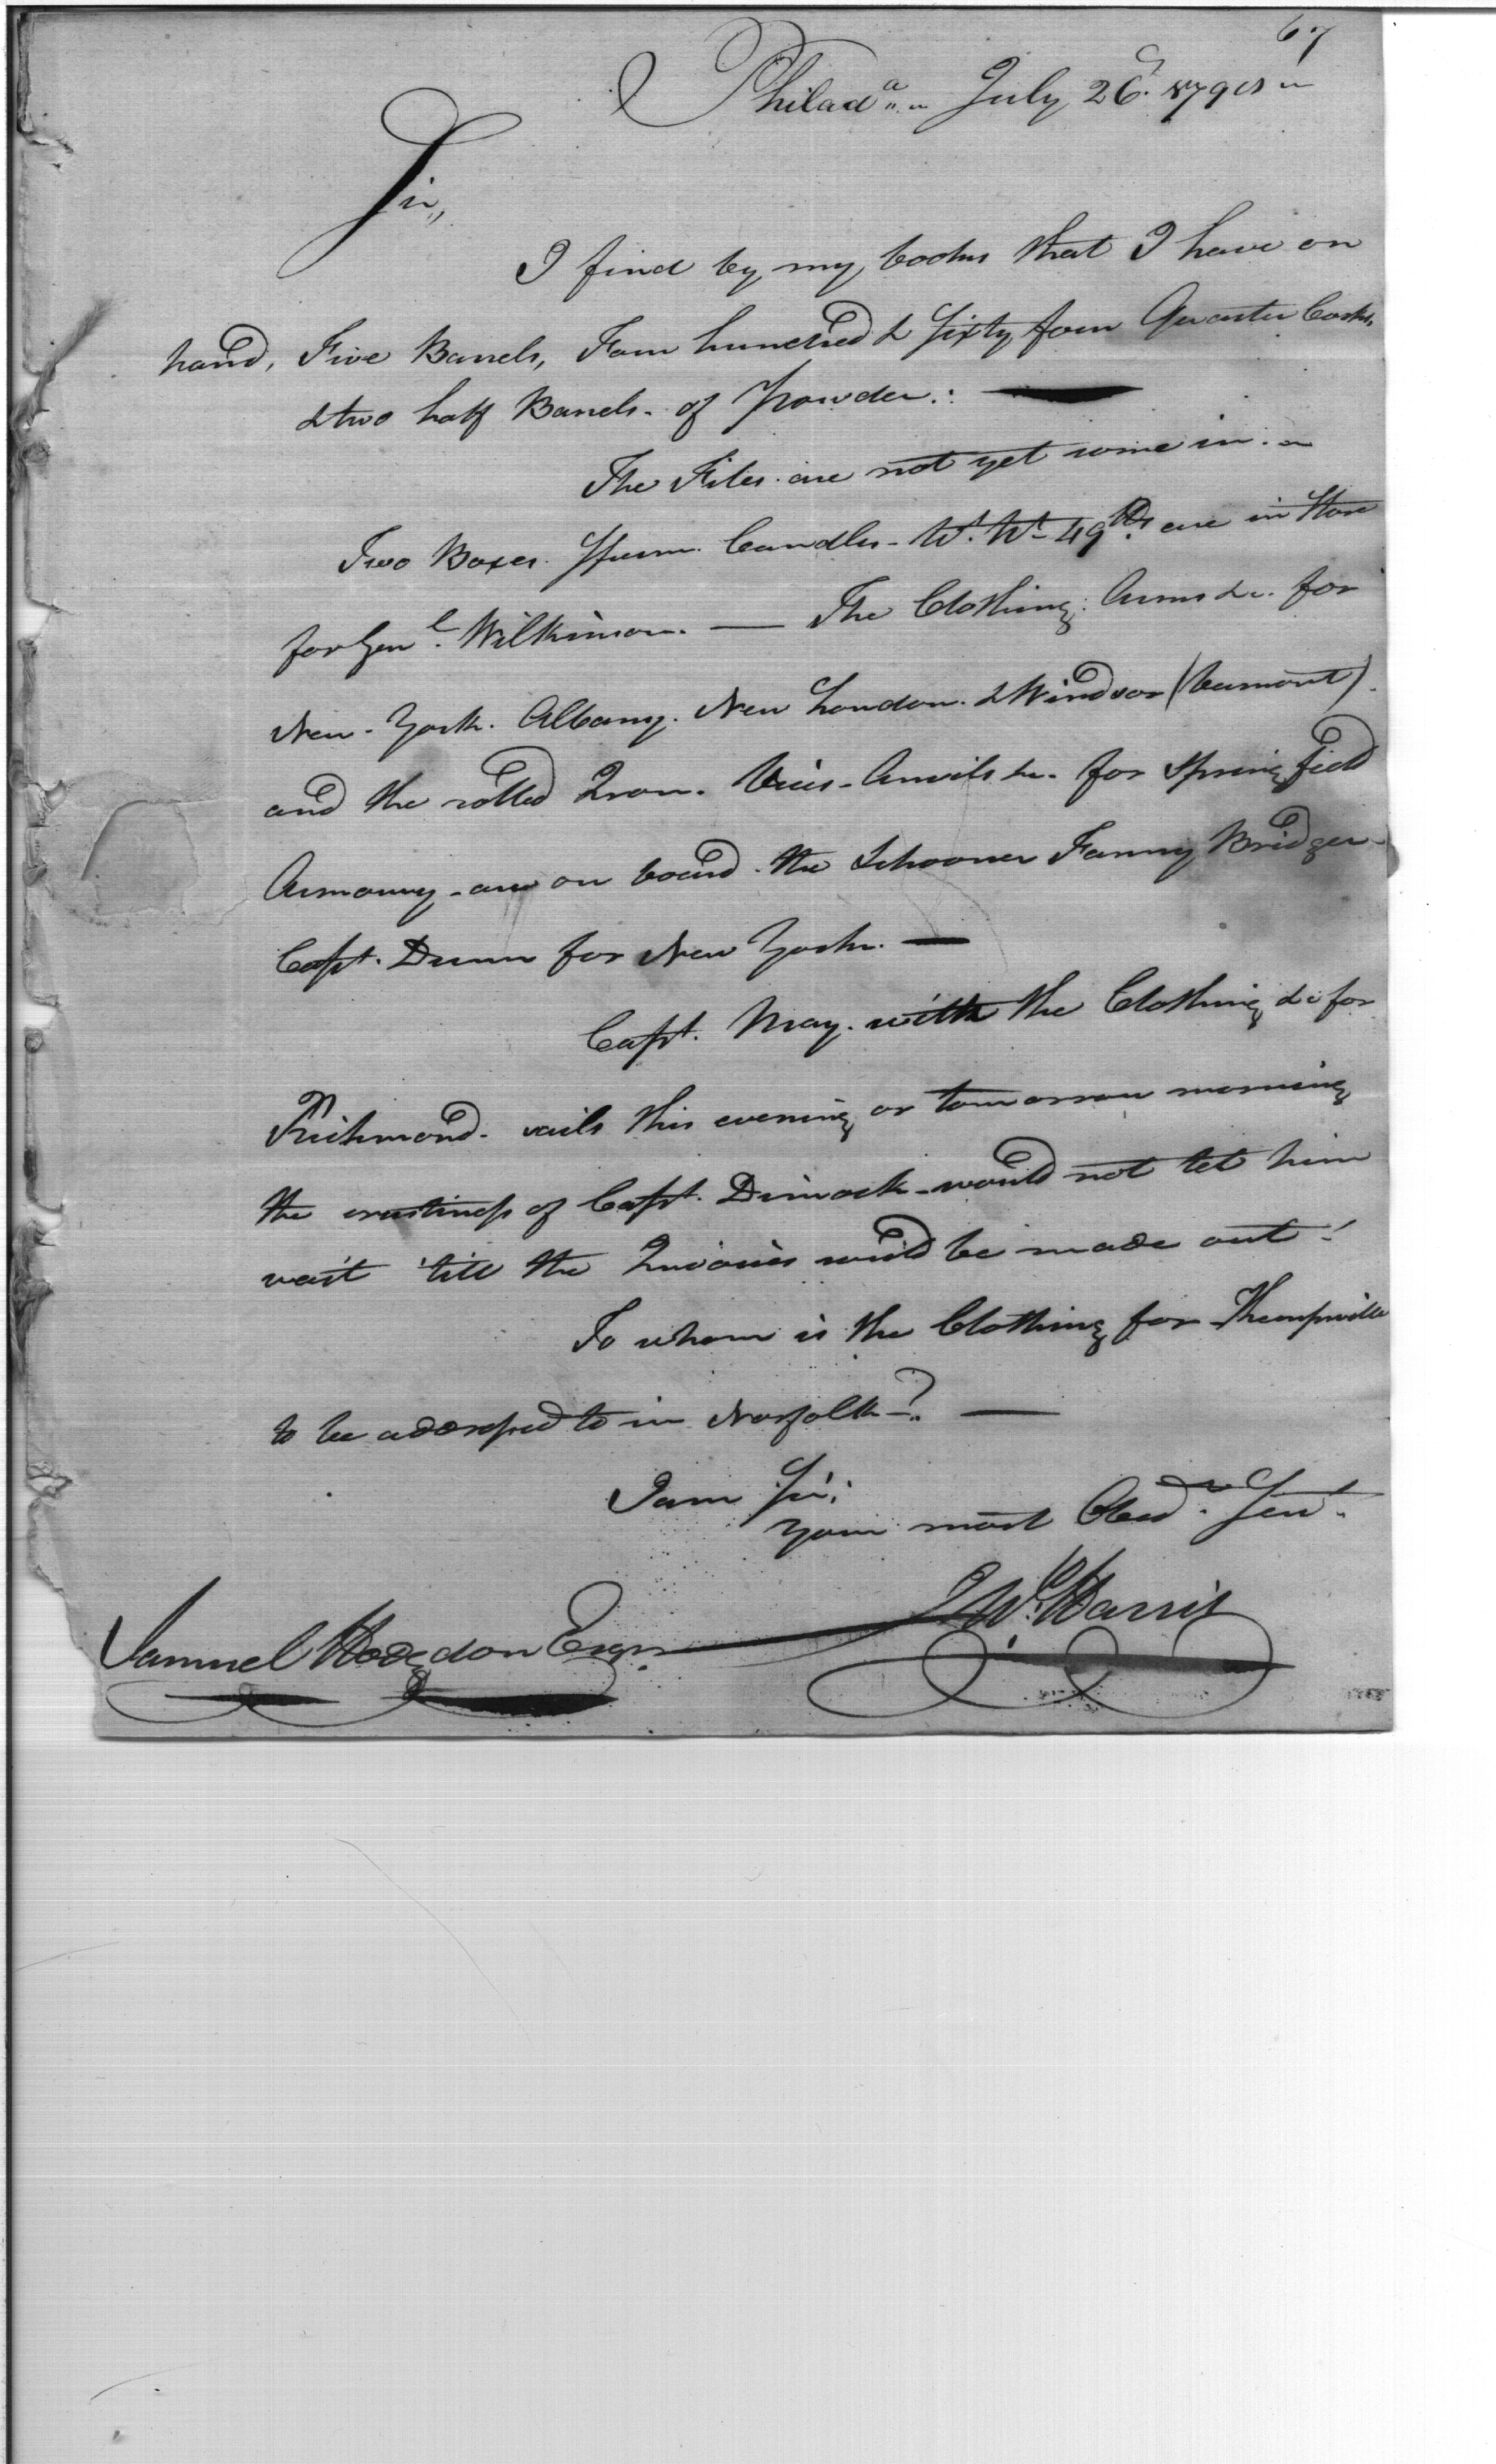 67
Philad.a July 26. 1798
Sir,
I find by my books that I have on
hand, Five Barrels, Four hundred & Sixty four Quarter Casks,
& two half Barrels of Powder.
The Files are not yet come in.
Two Boxes Sperm. Candles - Wt. 49 lbs. are in Store
for Genl. Wilkinson. — The Clothing. Arms &c. for
New-York. Albany. New London. & Windsor (Vermont)
and the rolled Iron. Vices - Anvils &c. for Springfield
Armoury - are on board the Schooner Fanny Bridger
Capt. Dunn for New York. —
Capt. May. with the Clothing &c for
Richmond. sails this evening or tomorrow morning
the of Capt. Dimock - would not let him
wait 'till the Invoices could be made out!
To whom is the Clothing for
to be addressed to in Norfolk—? —
I am Sir;
Your most Obedr. Sert.
Jn W. Harris
Samuel Hodgdon Esqr.